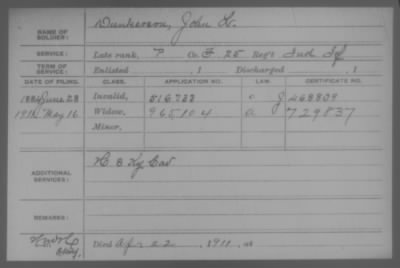 NAME OF SOLDIER: Dunkerson, John H.
SERVICE: Late rank, P Co. F 25 Reg't Ind Inf
TERM OF SERVICE: Enlisted , 1 Discharged , 1
DATE OF FILING. CLASS. APPLICATION NO. LAW. CERTIFICATE NO.
June 28 Invalid, 516733 468809
May 16 Widow, 965104 a 729837
Minor,
ADDITIONAL SERVICES: H 8 Ky Cav
REMARKS:
Died Apr 22, 1911, at